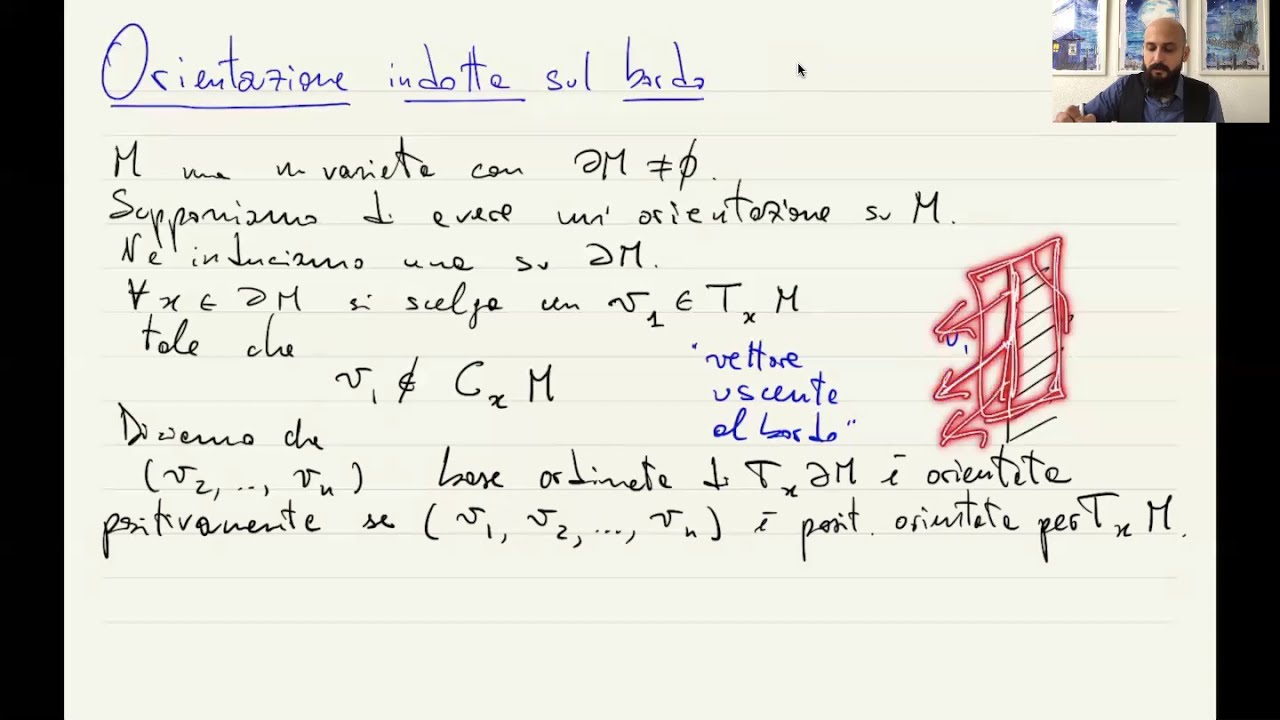 Orientazione indotta sul bordo
M una n varietà con ∂M ≠ ∅.
Supponiamo di avere un' orientazione su M.
Ne induciamo una su ∂M.
∀ x ∈ ∂M si scelga un v₁ ∈ Tₓ M
tale che
v₁ ∉ Cₓ M
"vettore
uscente
al bordo"
v₁
Diremo che
(v₂, .., vₙ) base ordinata di Tₓ ∂M è orientata
positivamente se (v₁, v₂, ..., vₙ) è posit. orientata per Tₓ M.